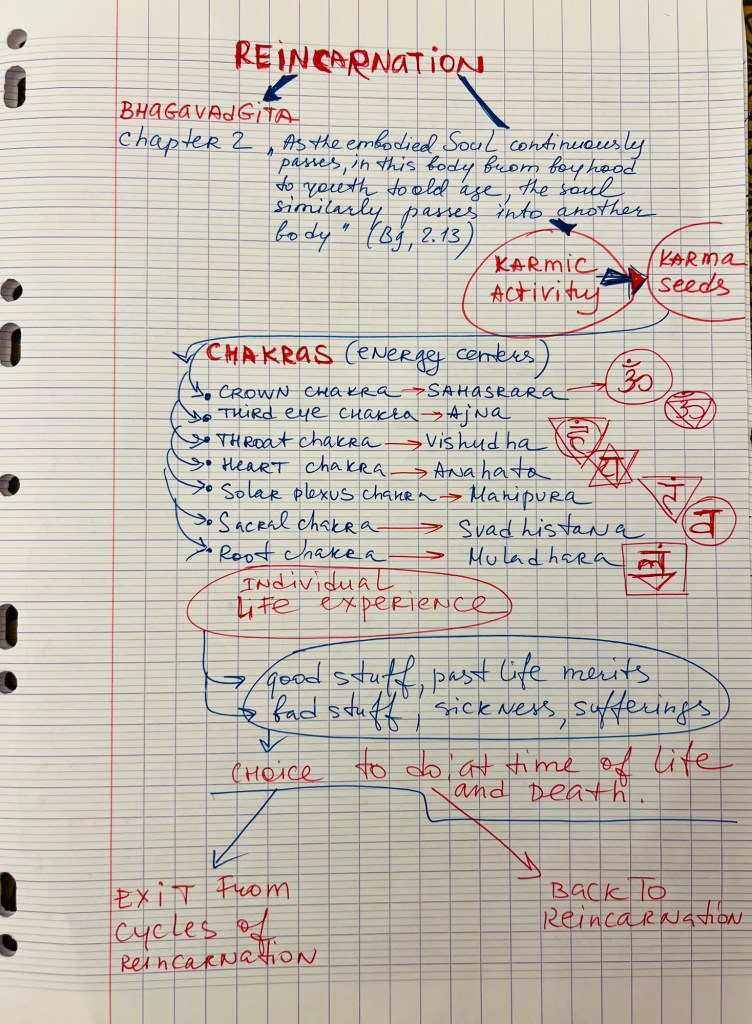 REINCARNATION
BHAGAVADGITA
Chapter 2 „As the embodied Soul continuously
passes, in this body from boyhood
to youth to old age, the soul
similarly passes into another
body" (Bg, 2.13)
KARMIC
ACTIVITY
KARMA
SEEDS
CHAKRAS (ENERGY CENTERS)
• CROWN CHAKRA → SAHASRARA → ॐ
• THIRD EYE CHAKRA → AJNA ॐ
• THROAT CHAKRA → VISHUDHA हं
• HEART CHAKRA → ANAHATA यं
• SOLAR PLEXUS CHAKRA → MANIPURA रं
• SACRAL CHAKRA → SVADHISTANA व
• ROOT CHAKRA → MULADHARA लं
INDIVIDUAL
LIFE EXPERIENCE
good stuff, past life merits
bad stuff, sickness, sufferings
CHOICE to do: at time of life
and DEATH.
EXIT FROM
CYCLES of
REINCARNATION
BACK TO
REINCARNATION